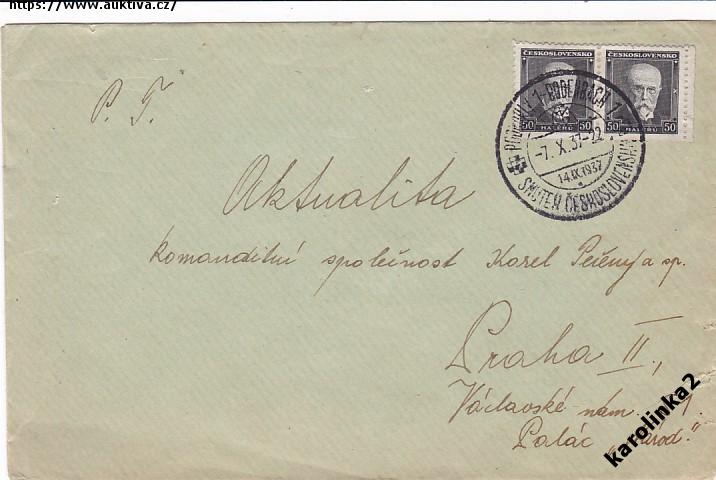 https://www.auktiva.cz/
ČESKOSLOVENSKO ČESKOSLOVENSKO
50 50 50 50
HALÉŘŮ HALÉŘŮ
1-BODENBACH 1
-7.X.37-22
14.IX.1937
SMUTEK ČESKOSLOVENSKA
P. T.
Aktualita
Komanditní společnost Karel Pečený a sp.
Praha II.,
Václavské nám.
Palác
karolinka2